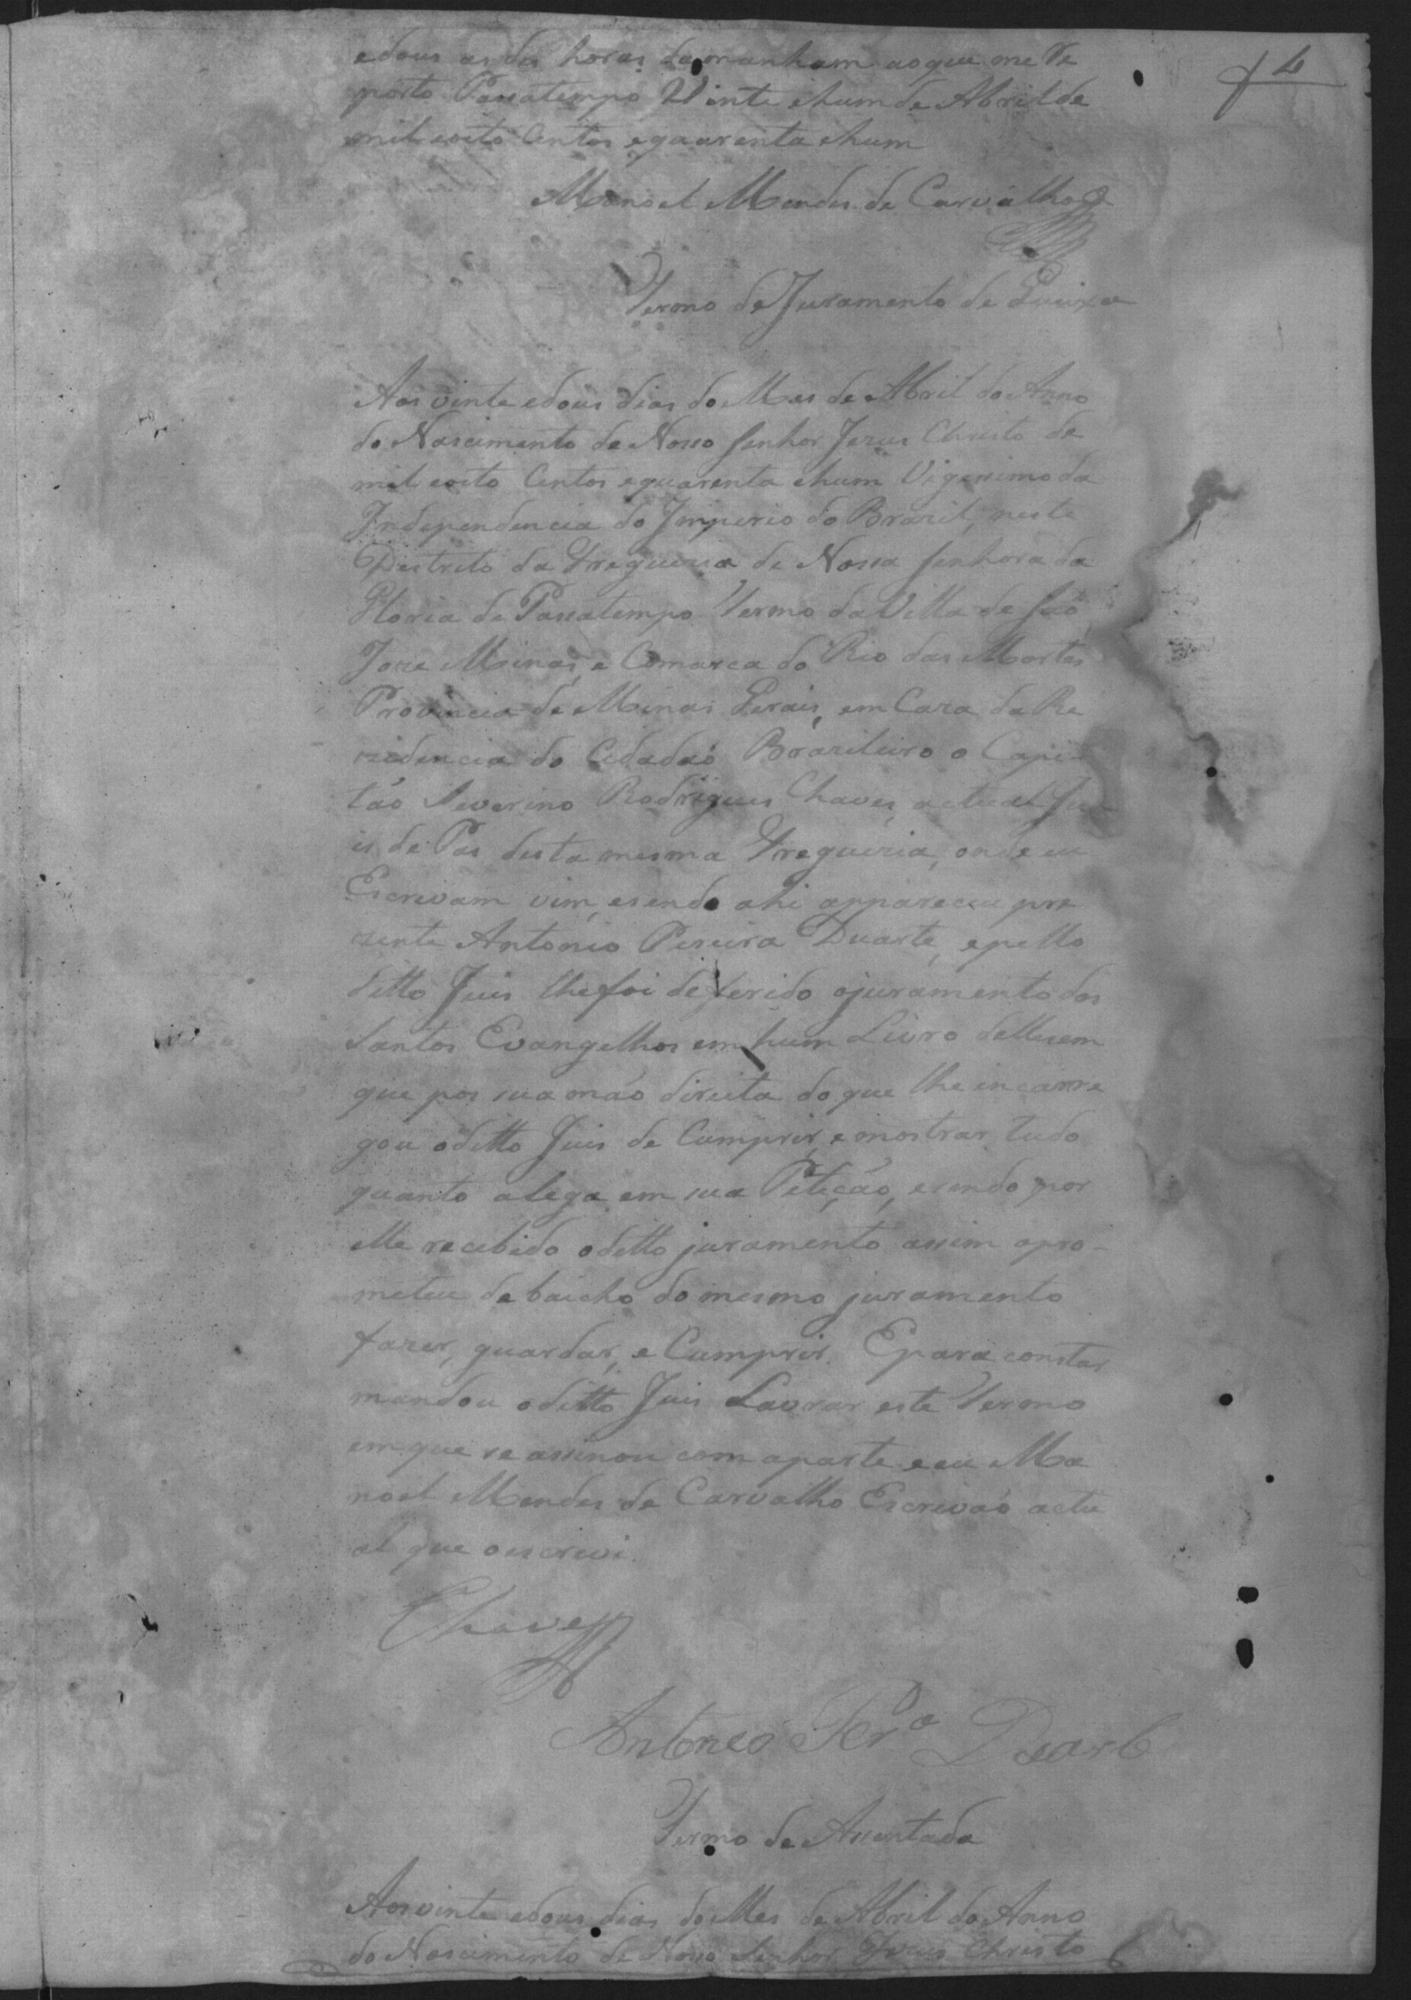 4
edous as des horas da manham aoque me re
porto Passatempo Vinte ehum de Abril de
mil eoito Centos equarenta ehum
Manoel Mendes de Carvalho
Termo de Juramento de Queixa
Aos vinte edous dias do Mes de Abril do Anno
do Nascimento de Nosso Senhor Jezus Christo de
mil eoito Centos equarenta ehum Vigessimo da
Independencia do Imperio do Brazil, neste
Destrito da Freguezia de Nossa Senhora da
Gloria de Passatempo Termo da Villa de São
Joze Minas, e Comarca do Rio das Mortes
Provincia de Minas Gerais, em Caza da Re
zidencia do Cidadaõ Brazileiro o Capi
tão Severino Rodrigues Chaves, actual Ju
is de Pas desta mesma Freguezia, onde eu
Escrivam vim, esendo ahi appareceu pre
zente Antonio Pereira Duarte, epello
ditto Juis lhe foi deferido ojuramento dos
Santos Evangelhos em hum Livro delles em
que pos sua mão direita do que lhe incarre
gou oditto Juis de Cumprir, e mostrar tudo
quanto alega em sua Petição, esendo por
elle recebido oditto juramento assim opro-
meteu debaicho do mesmo juramento
fazer, guardar, e Cumprir. Epara constar
mandou oditto Juis Lavrar este Termo
em que se assinou com aparte eeu Ma
noel Mendes de Carvalho Escrivaõ actu
al que oescrevi.
Chaves
Antoneo Per.ª Duarte
Termo de Assentada
Aos vinte edous dias do Mes de Abril do Anno
do Nascimento de Nosso Senhor Jezus Christo